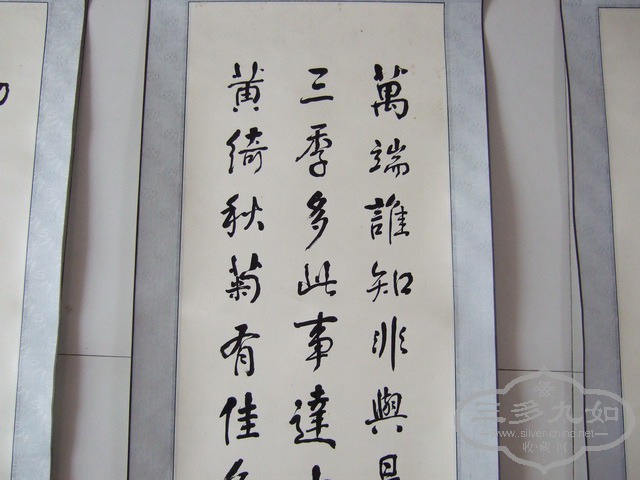 萬端誰知非與
三季多此事達
黄綺秋菊有佳
三多九如
www.silver-china.net
收藏网